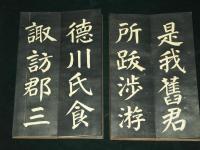 是我舊君
所跋涉游
德川氏食
諏訪郡三